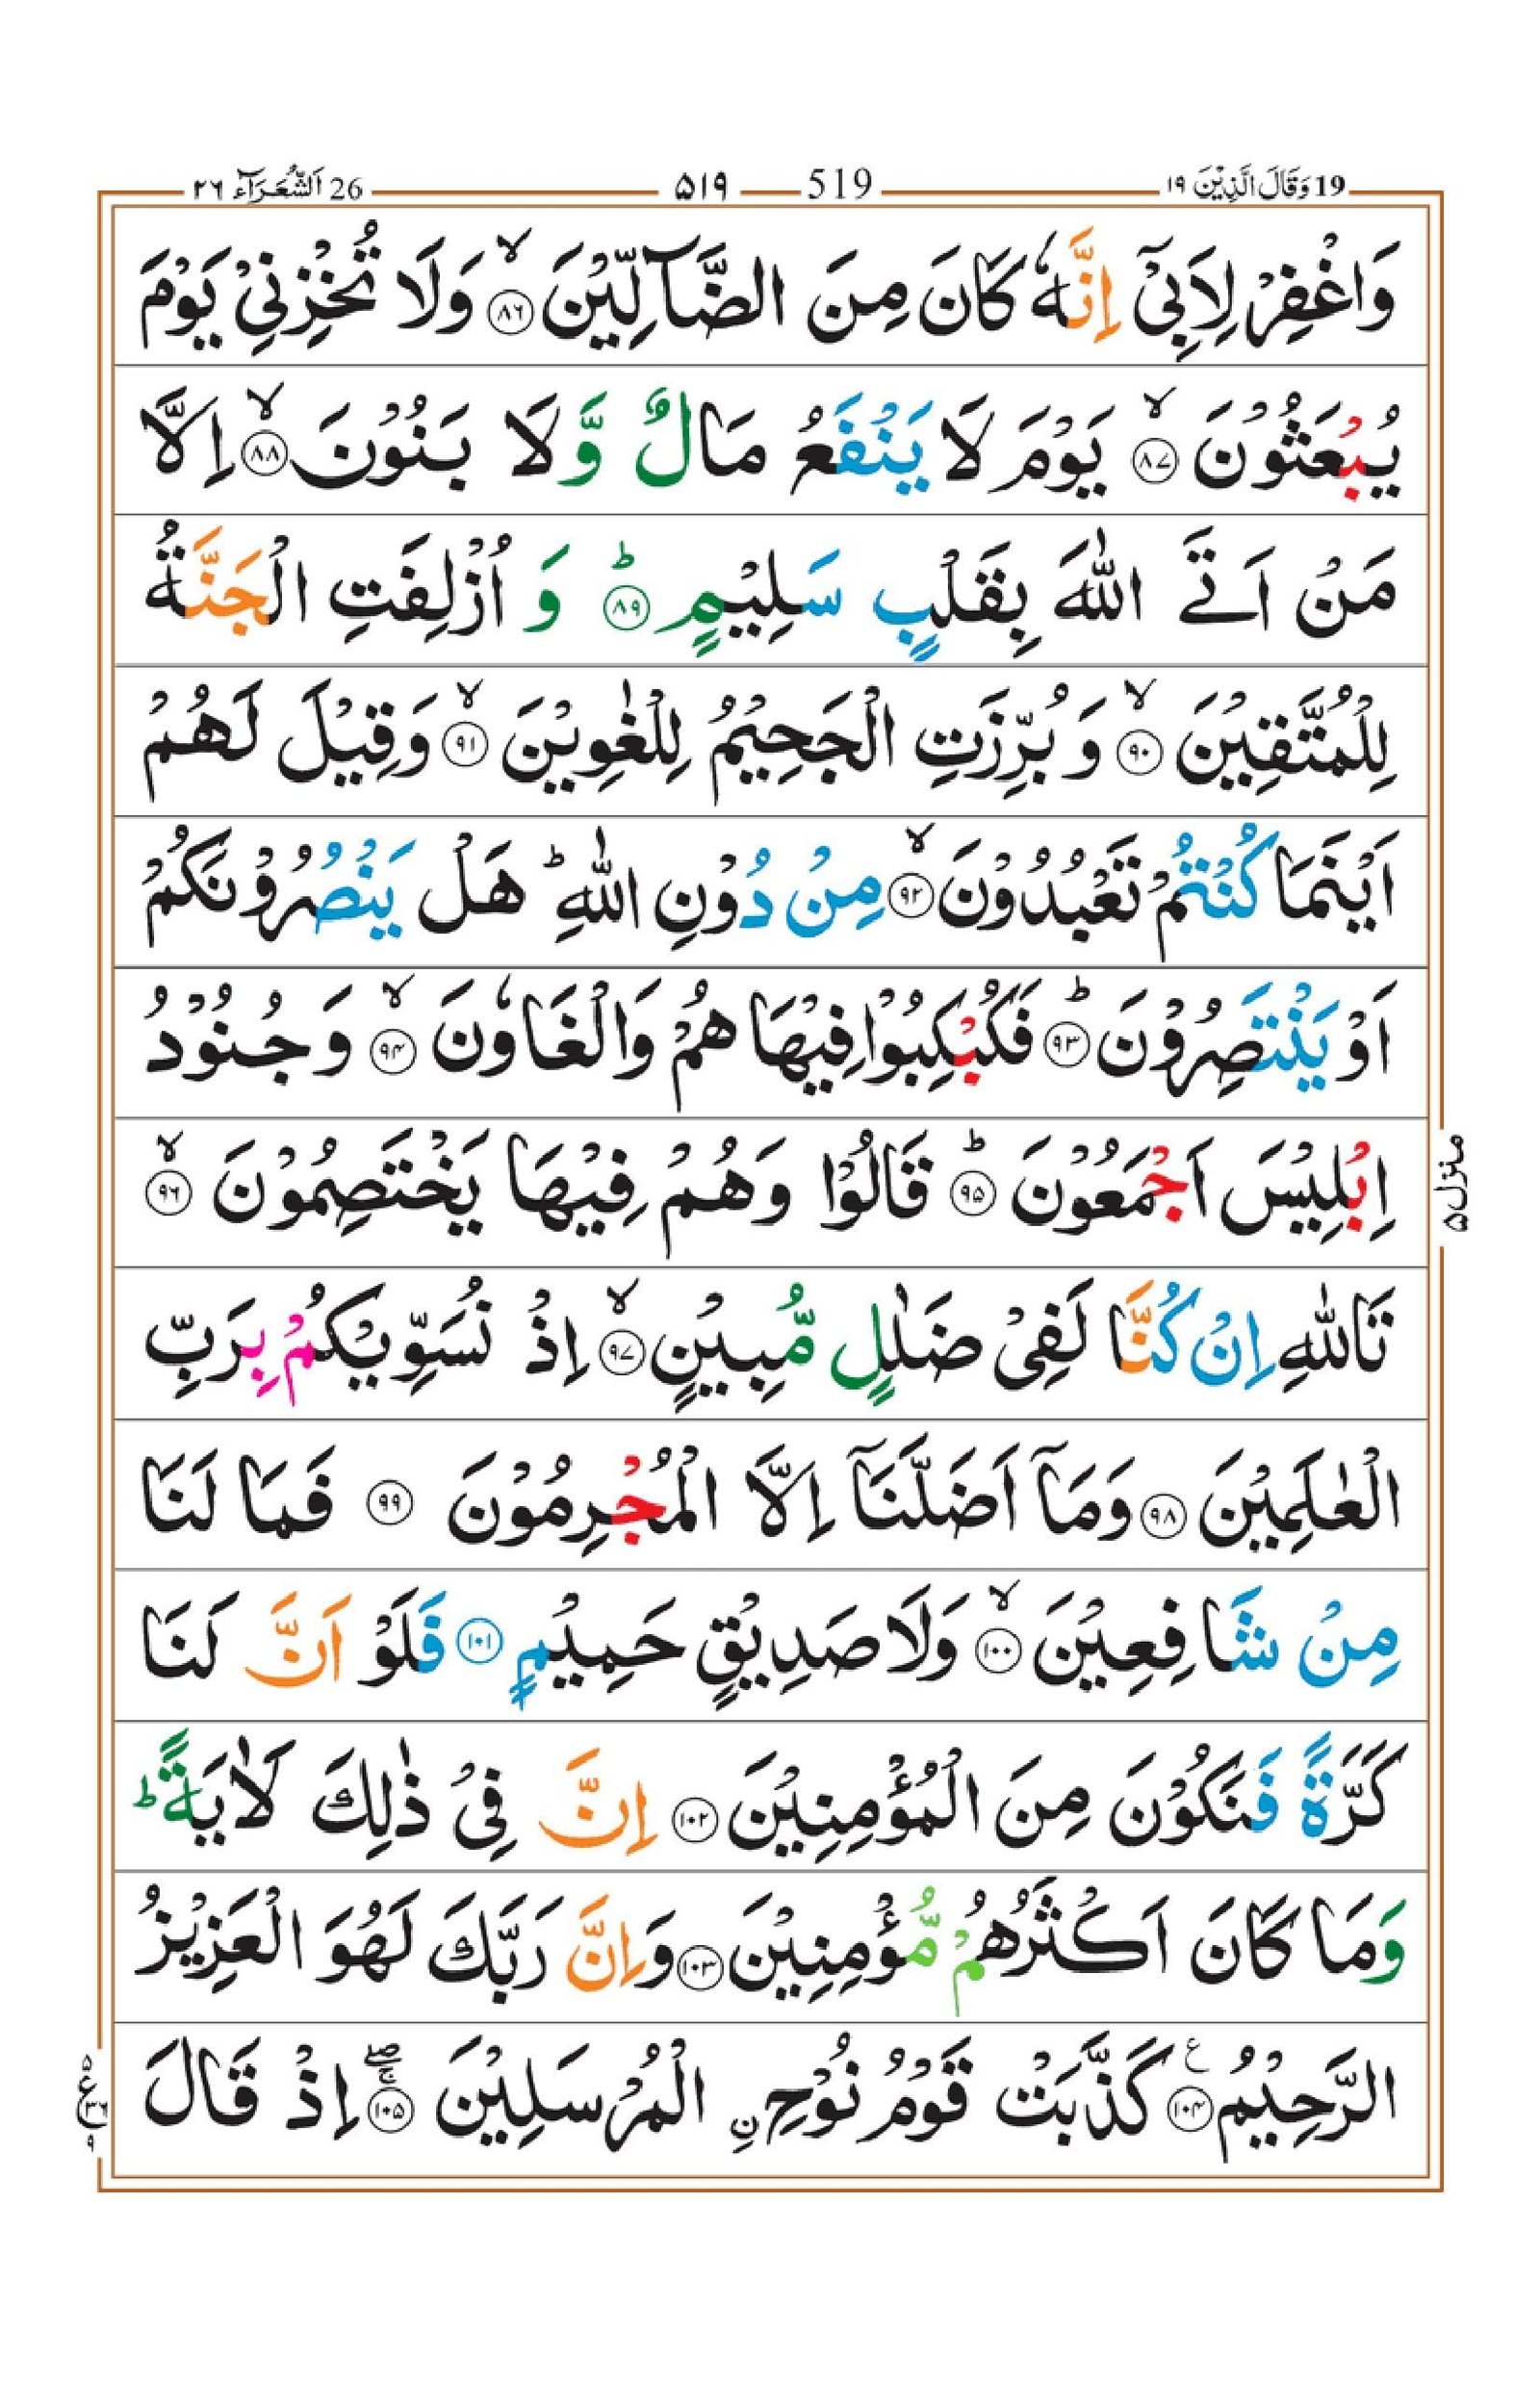 19 وَقَالَ الَّذِيْنَ ١٩ 519 ۵۱۹ 26 اَلشُّعَرَآء ٢٦
وَاغْفِرْ لِاَبِىْٓ اِنَّهٗ كَانَ مِنَ الضَّآلِّيْنَ ۙ‏﴿۸۶﴾ وَلَا تُخْزِنِىْ يَوْمَ
يُبْعَثُوْنَ ۙ‏﴿۸۷﴾ يَوْمَ لَا يَنْفَعُ مَالٌ وَّلَا بَنُوْنَ ۙ‏﴿۸۸﴾ اِلَّا
مَنْ اَتَى اللّٰهَ بِقَلْبٍ سَلِيْمٍ ؕ‏﴿۸۹﴾ وَ اُزْلِفَتِ الْجَنَّةُ
لِلْمُتَّقِيْنَ ۙ‏﴿۹۰﴾ وَ بُرِّزَتِ الْجَحِيْمُ لِلْغٰوِيْنَ ۙ‏﴿۹۱﴾ وَقِيْلَ لَهُمْ
اَيْنَمَا كُنْتُمْ تَعْبُدُوْنَ ۙ‏﴿۹۲﴾ مِنْ دُوْنِ اللّٰهِ ؕ هَلْ يَنْصُرُوْنَكُمْ
اَوْ يَنْتَصِرُوْنَ ؕ‏﴿۹۳﴾ فَكُبْكِبُوْا فِيْهَا هُمْ وَالْغَاوٗنَ ۙ‏﴿۹۴﴾ وَجُنُوْدُ
اِبْلِيْسَ اَجْمَعُوْنَ ؕ‏﴿۹۵﴾ قَالُوْا وَهُمْ فِيْهَا يَخْتَصِمُوْنَ ۙ‏﴿۹۶﴾
تَاللّٰهِ اِنْ كُنَّا لَفِىْ ضَلٰلٍ مُّبِيْنٍ ۙ‏﴿۹۷﴾ اِذْ نُسَوِّيْكُمْ بِرَبِّ
الْعٰلَمِيْنَ ﴿۹۸﴾ وَمَآ اَضَلَّنَاۤ اِلَّا الْمُجْرِمُوْنَ ﴿۹۹﴾ فَمَا لَنَا
مِنْ شَافِعِيْنَ ۙ‏﴿۱۰۰﴾ وَلَا صَدِيْقٍ حَمِيْمٍ ﴿۱۰۱﴾ فَلَوْ اَنَّ لَنَا
كَرَّةً فَنَكُوْنَ مِنَ الْمُؤْمِنِيْنَ ﴿۱۰۲﴾ اِنَّ فِىْ ذٰلِكَ لَاٰيَةً ؕ
وَمَا كَانَ اَكْثَرُهُمْ مُّؤْمِنِيْنَ ﴿۱۰۳﴾ وَاِنَّ رَبَّكَ لَهُوَ الْعَزِيْزُ
الرَّحِيْمُ ﴿۱۰۴﴾ ع كَذَّبَتْ قَوْمُ نُوْحِ ۨ الْمُرْسَلِيْنَ ۖۚ‏﴿۱۰۵﴾ اِذْ قَالَ
منزل ۵
۵ ع ۳۶ ۹